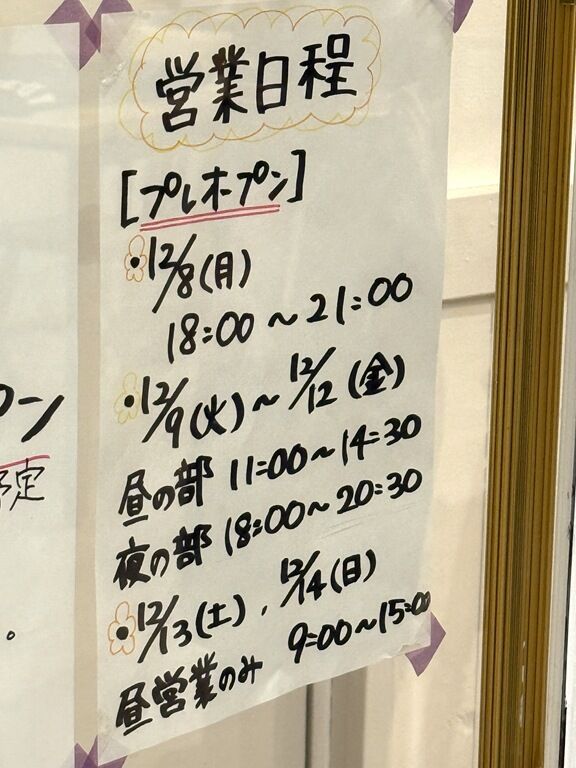 営業日程
[プレオープン]
•12/8(月)
18:00〜21:00
•12/9(火)〜12/12(金)
昼の部 11:00〜14:30
夜の部 18:00〜20:30
•12/13(土)、12/14(日)
昼営業のみ 9:00〜15:00
ン
予定
。